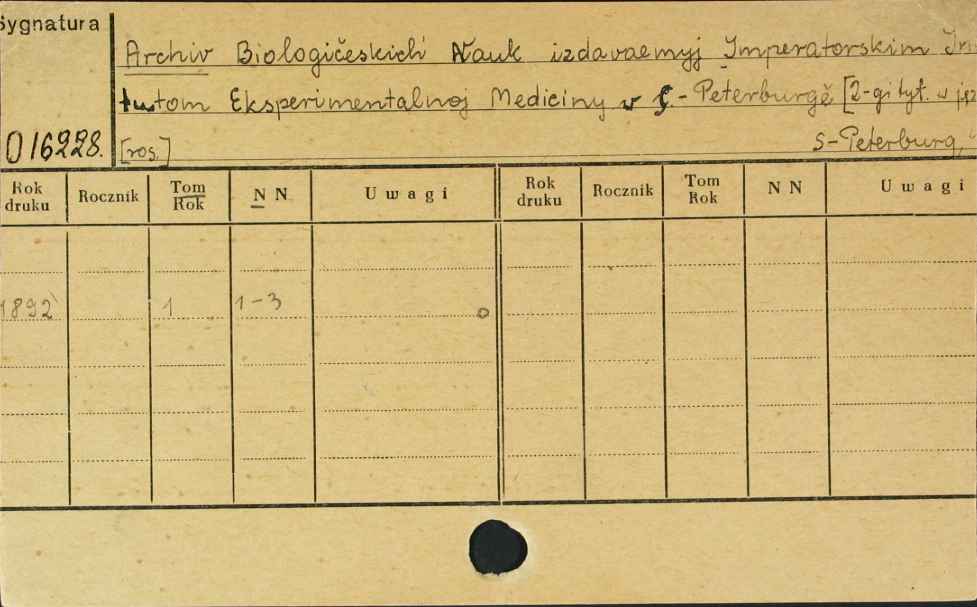 Sygnatura
Archiv Biologičeskich Nauk izdavaemyj Imperatorskim
tutom Eksperimentalnoj Mediciny v S.-Peterburgě [2-gi tyt. w jęz
016228. [ros.] S-Peterburg,
Rok druku Rocznik Tom Rok N N Uwagi Rok druku Rocznik Tom Rok N N Uwagi
1892 1 1-3 0